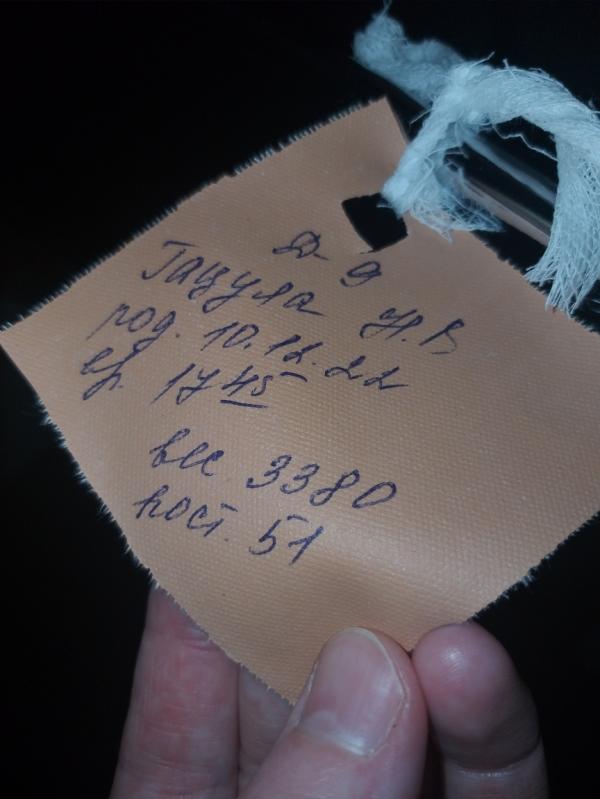 Д-9
Гацула Н.В
род. 10.12.22
вр. 17 45
вес 3380
рост. 51